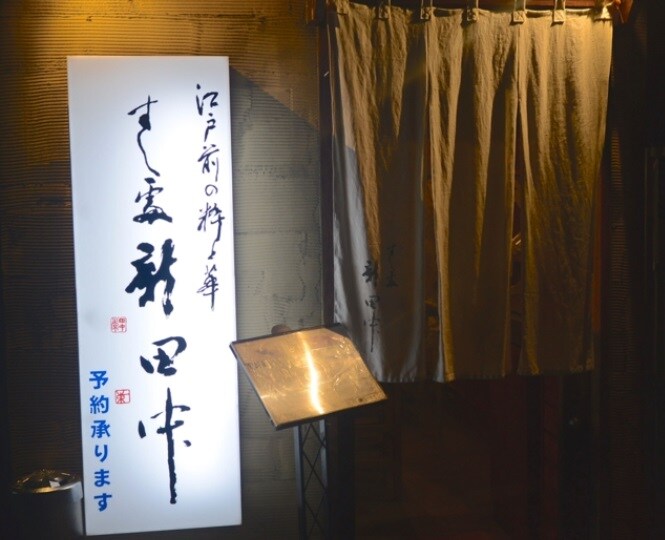 江戸前の粋と華
すし處 新田中
予約承ります
新田中